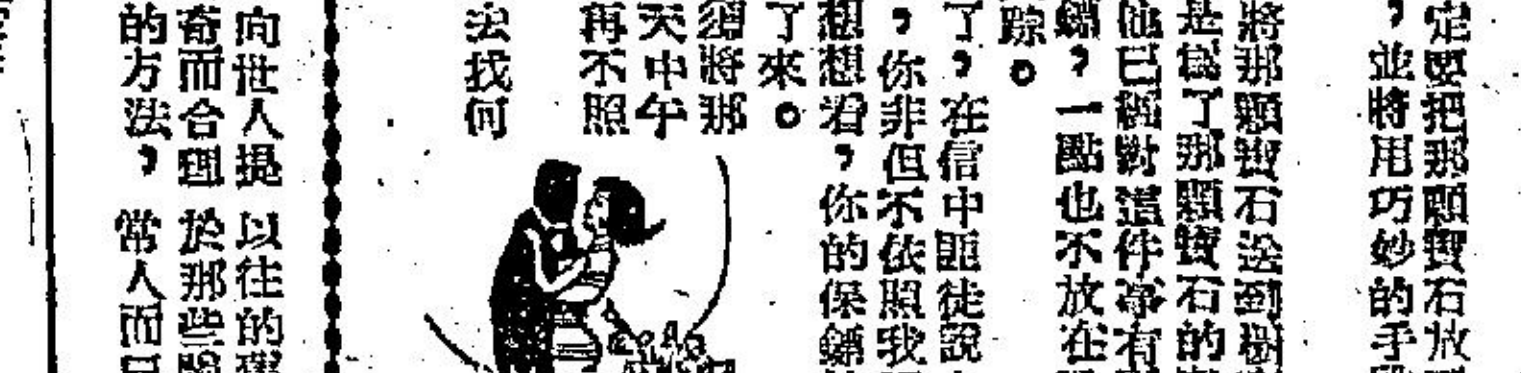 定要把那顆寶石放
，並將用巧妙的手
將那顆寶石送到樹
是為了那顆寶石的
他已經對這件事有
鏢，一點也不放在
踪。
了，在信中匪徒說
，你非但不依照我
想想看，你的保鏢
了來。
須將那
天中午
再不照
去找何
向世人提 以往的
奇而合理 於那些
的方法， 常人而